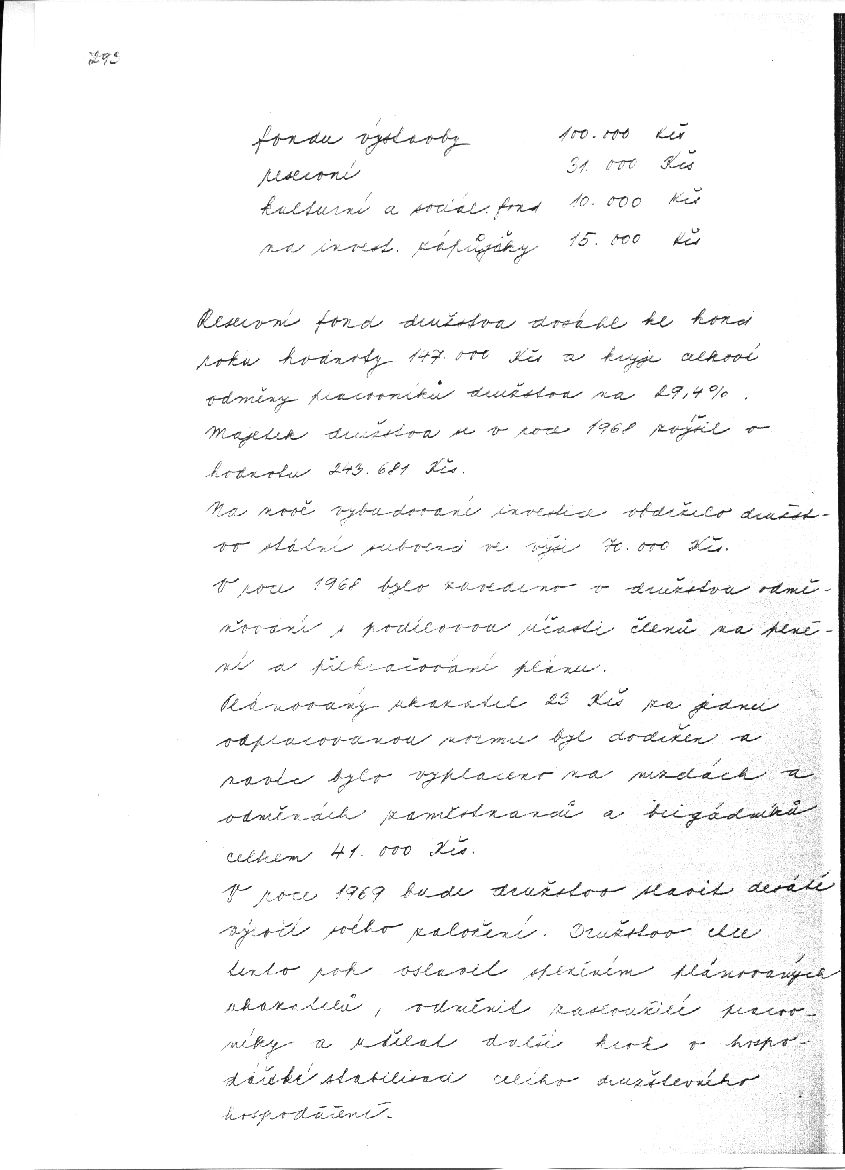 293
fondu výstavby 100.000 Kčs
reservní 31.000 Kčs
kulturní a sociál. fond 10.000 Kčs
na invest. zápůjčky 15.000 Kčs
Reservní fond družstva dosáhl ke konci
roku hodnoty 147.000 Kčs a kryje celkové
odměny pracovníků družstva na 29,4%.
Majetek družstva se v roce 1968 zvýšil o
hodnotu 243.681 Kčs.
Na nově vybudované investice obdrželo družst-
vo státní subvenci ve výši 70.000 Kčs.
V roce 1968 bylo zavedeno v družstvu odmě-
ňování s podílovou účastí členů na plně-
ní a překračování plánu.
Plánovaný ukazatel 23 Kčs za jednu
odpracovanou normu byl dodržen a
navíc bylo vyplaceno na mzdách a
odměnách zaměstnanců a brigádníků
celkem 41.000 Kčs.
V roce 1969 bude družstvo slavit desáté
výročí svého založení. Družstvo chce
tento rok oslavit splněním plánovaných
ukazatelů, odměnit zasloužilé pracov-
níky a udělat další krok v hospo-
dářské stabilisaci celého družstevního
hospodáření.